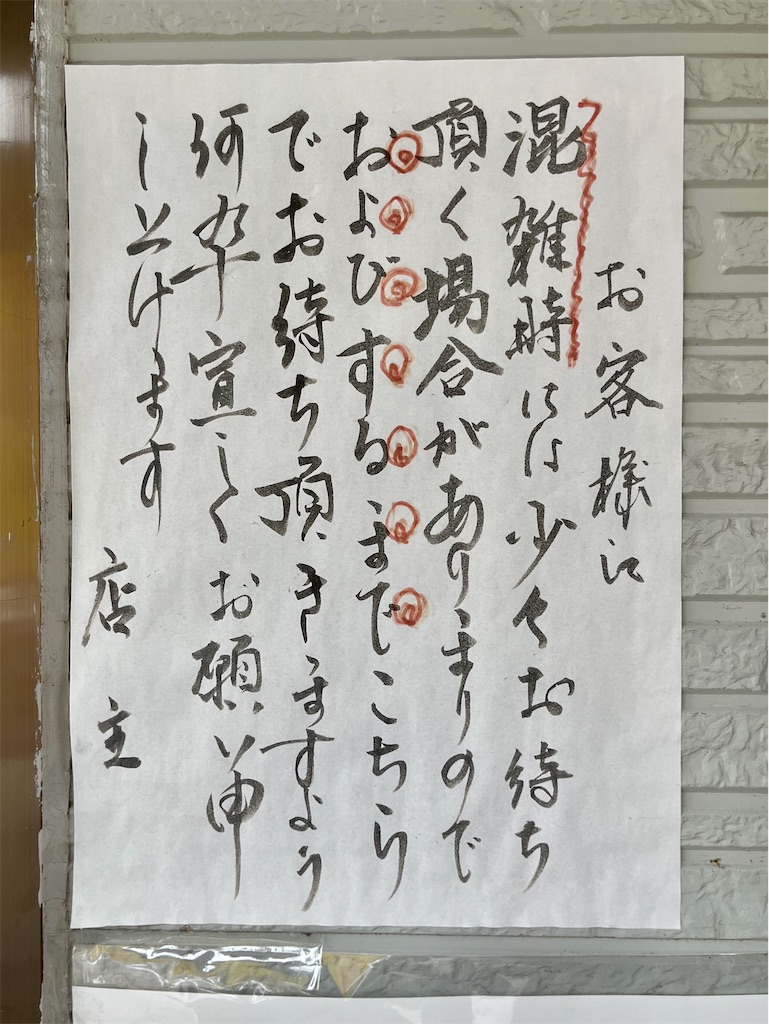 お客様に
混雑時には少々お待ち
頂く場合がありまりので
およびするまでこちら
でお待ち頂きますよう
何卒宜しくお願い申
し上げます
店主